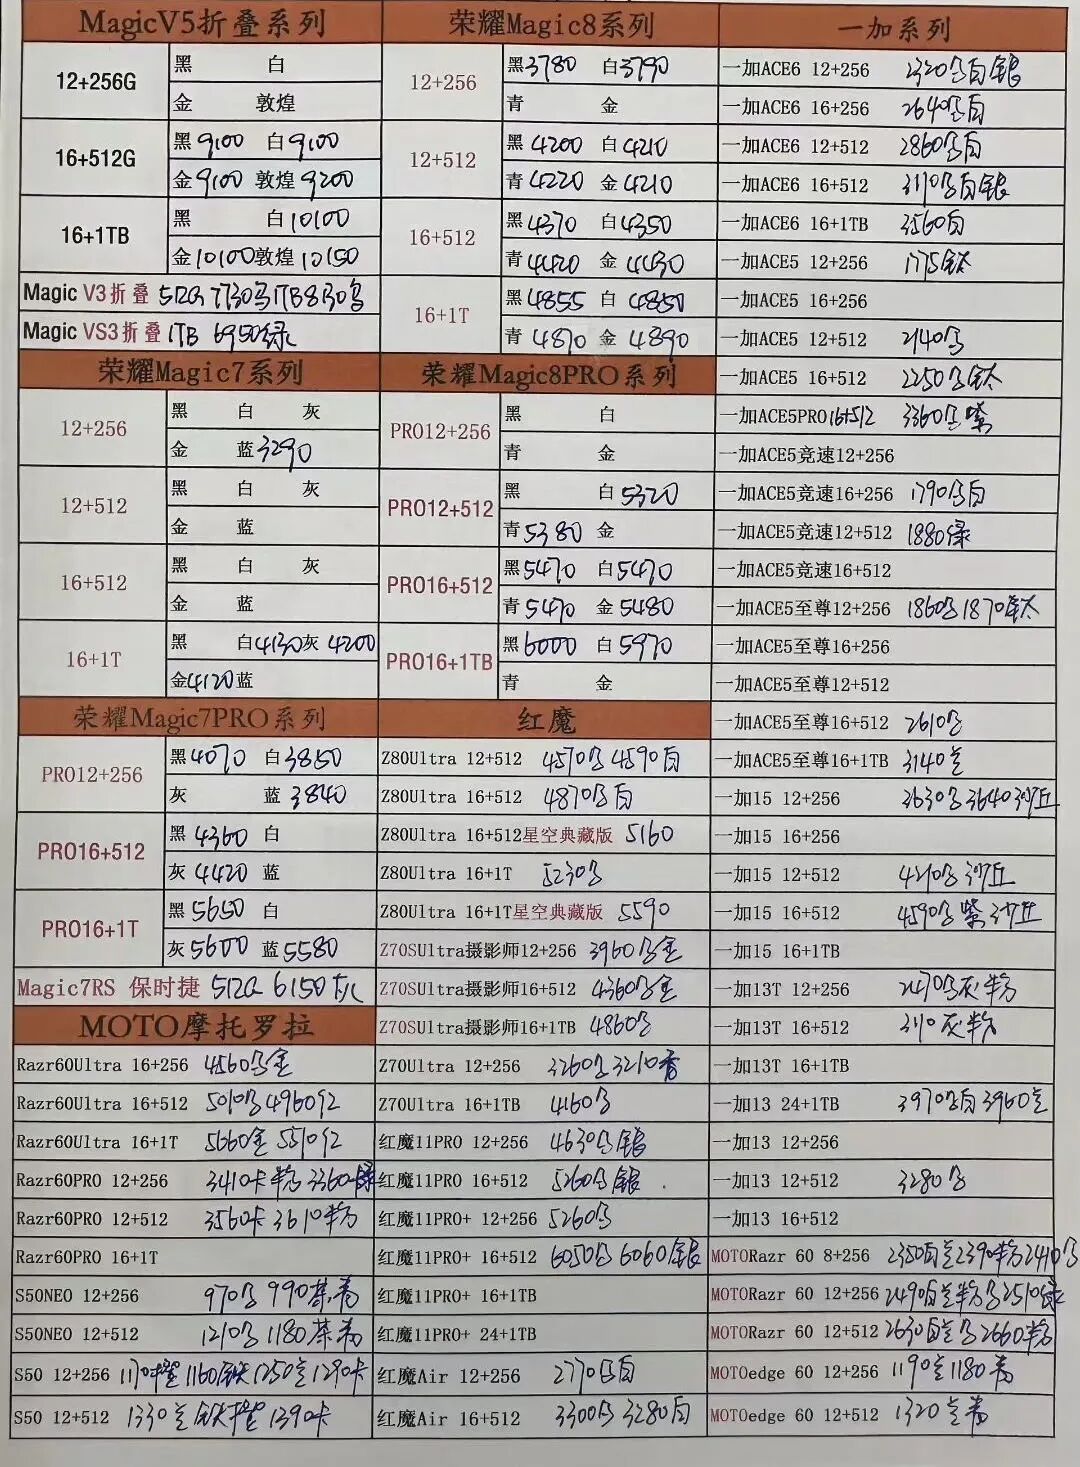 MagicV5折叠系列
12+256G
黑 白
金 敦煌
16+512G
黑9100 白9100
金9100 敦煌9200
16+1TB
黑 白10100
金10100敦煌10150
Magic V3折叠 512G 7730 1TB8130
Magic VS3折叠 1TB 6950绿
荣耀Magic7系列
12+256
黑 白 灰
金 蓝3290
12+512
黑 白 灰
金 蓝
16+512
黑 白 灰
金 蓝
16+1T
黑 白4130灰 4200
金4120蓝
荣耀Magic7PRO系列
PRO12+256
黑4070 白3850
灰 蓝 3840
PRO16+512
黑 4360 白
灰 4420 蓝
PRO16+1T
黑5650 白
灰5600 蓝5580
Magic7RS 保时捷 512G 6150灰
MOTO摩托罗拉
Razr60Ultra 16+256 4560 金
Razr60Ultra 16+512 5010 4960红
Razr60Ultra 16+1T 5660金 5510红
Razr60PRO 12+256 3410卡粉 3360绿
Razr60PRO 12+512 3560卡 3610粉
Razr60PRO 16+1T
S50NEO 12+256 970 990茶青
S50NEO 12+512 1210 1180茶青
S50 12+256 1170 1160 1250兰1290卡
S50 12+512 1330兰 1390卡
荣耀Magic8系列
12+256
黑3780 白3790
青 金
12+512
黑4200 白4210
青4220 金4210
16+512
黑4370 白4350
青4420 金 4430
16+1T
黑4855 白 4850
青 4870 金 4890
荣耀Magic8PRO系列
PRO12+256
黑 白
青 金
PRO12+512
黑 白5320
青5380 金
PRO16+512
黑5470 白5470
青5470 金5480
PRO16+1TB
黑6000 白5970
青 金
红魔
Z80Ultra 12+512 4570 4590白
Z80Ultra 16+512 4870 白
Z80Ultra 16+512星空典藏版 5160
Z80Ultra 16+1T 5230
Z80Ultra 16+1T星空典藏版 5590
Z70SUltra摄影师12+256 3960 金
Z70SUltra摄影师16+512 4360 金
Z70SUltra摄影师16+1TB 4860
Z70Ultra 12+256 3260 3210
Z70Ultra 16+1TB 4160
红魔11PRO 12+256 4630 银
红魔11PRO 16+512 5260 银
红魔11PRO+ 12+256 5260
红魔11PRO+ 16+512 6050 6060银
红魔11PRO+ 16+1TB
红魔11PRO+ 24+1TB
红魔Air 12+256 2770 白
红魔Air 16+512 3300 3280白
一加系列
一加ACE6 12+256 2320 白银
一加ACE6 16+256 2640 白
一加ACE6 12+512 2860 白
一加ACE6 16+512 3110 白银
一加ACE6 16+1TB 3560白
一加ACE5 12+256 1775钛
一加ACE5 16+256
一加ACE5 12+512 2140
一加ACE5 16+512 2250 钛
一加ACE5PRO16+512 3360 紫
一加ACE5竞速12+256
一加ACE5竞速16+256 1790 白
一加ACE5竞速12+512 1880绿
一加ACE5竞速16+512
一加ACE5至尊12+256 1860 1870钛
一加ACE5至尊16+256
一加ACE5至尊12+512
一加ACE5至尊16+512 2610
一加ACE5至尊16+1TB 3140兰
一加15 12+256 3630 3640沙丘
一加15 16+256
一加15 12+512 4210 沙丘
一加15 16+512 4590 紫 沙丘
一加15 16+1TB
一加13T 12+256 2470 灰粉
一加13T 16+512 3110灰粉
一加13T 16+1TB
一加13 24+1TB 3970 白 3960兰
一加13 12+256
一加13 12+512 3280
一加13 16+512
MOTORazr 60 8+256 2350白兰2390粉2410
MOTORazr 60 12+256 2490白兰粉 2510绿
MOTORazr 60 12+512 2630白兰 2660粉
MOTOedge 60 12+256 1190兰1180青
MOTOedge 60 12+512 1320兰青